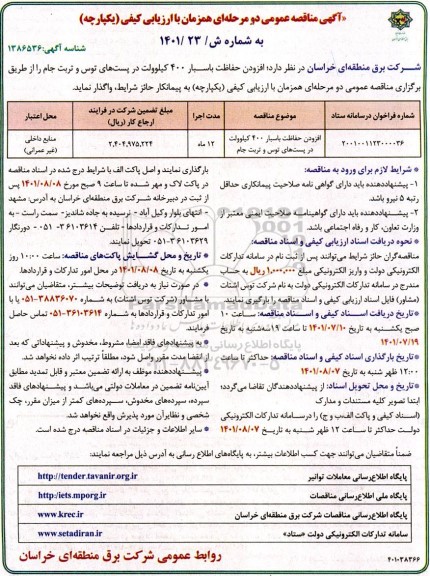 «آگهی مناقصه عمومی دو مرحله‌ای همزمان با ارزیابی کیفی (یکپارچه)
به شماره ش/ ۲۳ /۱۴۰۱
شناسه آگهی: ۱۳۸۶۵۳۶
شرکت برق منطقه‌ای خراسان در نظر دارد؛ افزودن حفاظت باسبار ۴۰۰ کیلوولت در پست‌های توس و تربت جام را از طریق
برگزاری مناقصه عمومی دو مرحله‌ای همزمان با ارزیابی کیفی (یکپارچه) به پیمانکار حائز شرایط، واگذار نماید.
شماره فراخوان در سامانه ستاد
موضوع مناقصه
مدت اجرا
مبلغ تضمین شرکت در فرایند ارجاع کار (ریال)
محل اعتبار
۲۰۰۱۰۰۱۱۲۳۰۰۰۰۳۶
افزودن حفاظت باسبار ۴۰۰ کیلوولت
در پست‌های توس و تربت جام
۱۲ ماه
۲,۴۰۴,۹۷۵,۲۲۴
منابع داخلی
(غیر عمرانی)
شرایط لازم برای ورود به مناقصه:
۱- پیشنهاددهنده باید دارای گواهی نامه صلاحیت پیمانکاری حداقل
رتبه ۵ نیرو باشد.
۲- پیشنهاددهنده باید دارای گواهینامه صلاحیت ایمنی معتبر از
وزارت تعاون، کار و رفاه اجتماعی باشد.
نحوه دریافت اسناد ارزیابی کیفی و اسناد مناقصه:
مناقصه‌گران حائز شرایط می‌توانند پس از ثبت نام در سامانه تدارکات
الکترونیکی دولت و واریز الکترونیکی مبلغ ۱,۰۰۰,۰۰۰ ریال به حساب
مندرج در سامانه تدارکات الکترونیکی دولت به نام شرکت توس اشتات
(مشاور) فایل اسناد ارزیابی کیفی و اسناد مناقصه را بارگیری نمایند.
تاریخ دریافت اسناد کیفی و اسناد مناقصه: ساعت ۱۰
صبح یکشنبه به تاریخ ۱۴۰۱/۰۷/۱۰ تا ساعت ۱۹ سه‌شنبه به تاریخ
۱۴۰۱/۰۷/۱۹
تاریخ بارگذاری اسناد کیفی و اسناد مناقصه: حداکثر تا ساعت
۱۲:۰۰ ظهر شنبه به تاریخ ۱۴۰۱/۰۸/۰۷
تاریخ و محل تحویل اسناد: از پیشنهاددهندگان تقاضا می‌گردد؛
ابتدا تصویر کلیه مستندات و مدارک
(اسناد کیفی و پاکت الف، ب و ج) را در سامانه تدارکات الکترونیکی
دولت حداکثر تا ساعت ۱۲ ظهر شنبه به تاریخ ۱۴۰۱/۰۸/۰۷
بارگذاری نمایند و اصل پاکت الف با شرایط درج شده در اسناد مناقصه
در پاکت لاک و مهر شده تا ساعت ۹ صبح مورخ ۱۴۰۱/۰۸/۰۸ پس
از ثبت در دبیرخانه شرکت برق منطقه‌ای خراسان به آدرس: مشهد
- انتهای بلوار وکیل آباد - نرسیده به جاده شاندیز- سمت راست - به
امور تدارکات و قراردادها - تلفن ۳۶۱۰۳۶۱۴-۰۵۱ - دورنگار
۳۶۱۰۳۶۲۹-۰۵۱ تحویل نمایند.
تاریخ و محل گشایش پاکت‌های مناقصه: ساعت ۱۰:۰۰ روز
یکشنبه به تاریخ ۱۴۰۱/۰۸/۰۸ در محل امور تدارکات و قراردادها.
در صورت نیاز به دریافت توضیحات بیشتر، متقاضیان می‌توانند
با مشاور (شرکت توس اشتات) به شماره ۳۸۸۳۶۰۷۰-۰۵۱ یا با
امور تدارکات و قراردادها به شماره ۳۶۱۰۳۶۱۴-۰۵۱ تماس حاصل
فرمایند.
به پیشنهادهای فاقد امضا، مشروط، مخدوش و پیشنهاداتی که بعد
از انقضا مدت مقرر واصل شود، مطلقاً ترتیب اثر داده نخواهد شد.
پیشنهاددهنده موظف به ارائه تضمین معتبر و قابل تمدید مطابق
آیین‌نامه تضمین در معاملات دولتی می‌باشد و پیشنهادهای فاقد
سپرده، سپرده‌های مخدوش، سپرده‌های کمتر از میزان مقرر، چک
شخصی و نظایر آن مورد پذیرش واقع نخواهد شد.
سایر اطلاعات و جزئیات در اسناد مناقصه درج شده است.
ضمناً متقاضیان می‌توانند جهت کسب اطلاعات بیشتر، به پایگاه‌های اطلاع رسانی به آدرس ذیل مراجعه نمایند:
پایگاه اطلاع‌رسانی معاملات توانیر
http://tender.tavanir.org.ir
پایگاه ملی اطلاع‌رسانی مناقصات
http://iets.mporg.ir
پایگاه اطلاع‌رسانی مناقصات شرکت برق منطقه‌ای خراسان
www.krec.ir
سامانه تدارکات الکترونیکی دولت «ستاد»
www.setadiran.ir
۴۰۱۰۳۸۳۶۶
روابط عمومی شرکت برق منطقه‌ای خراسان